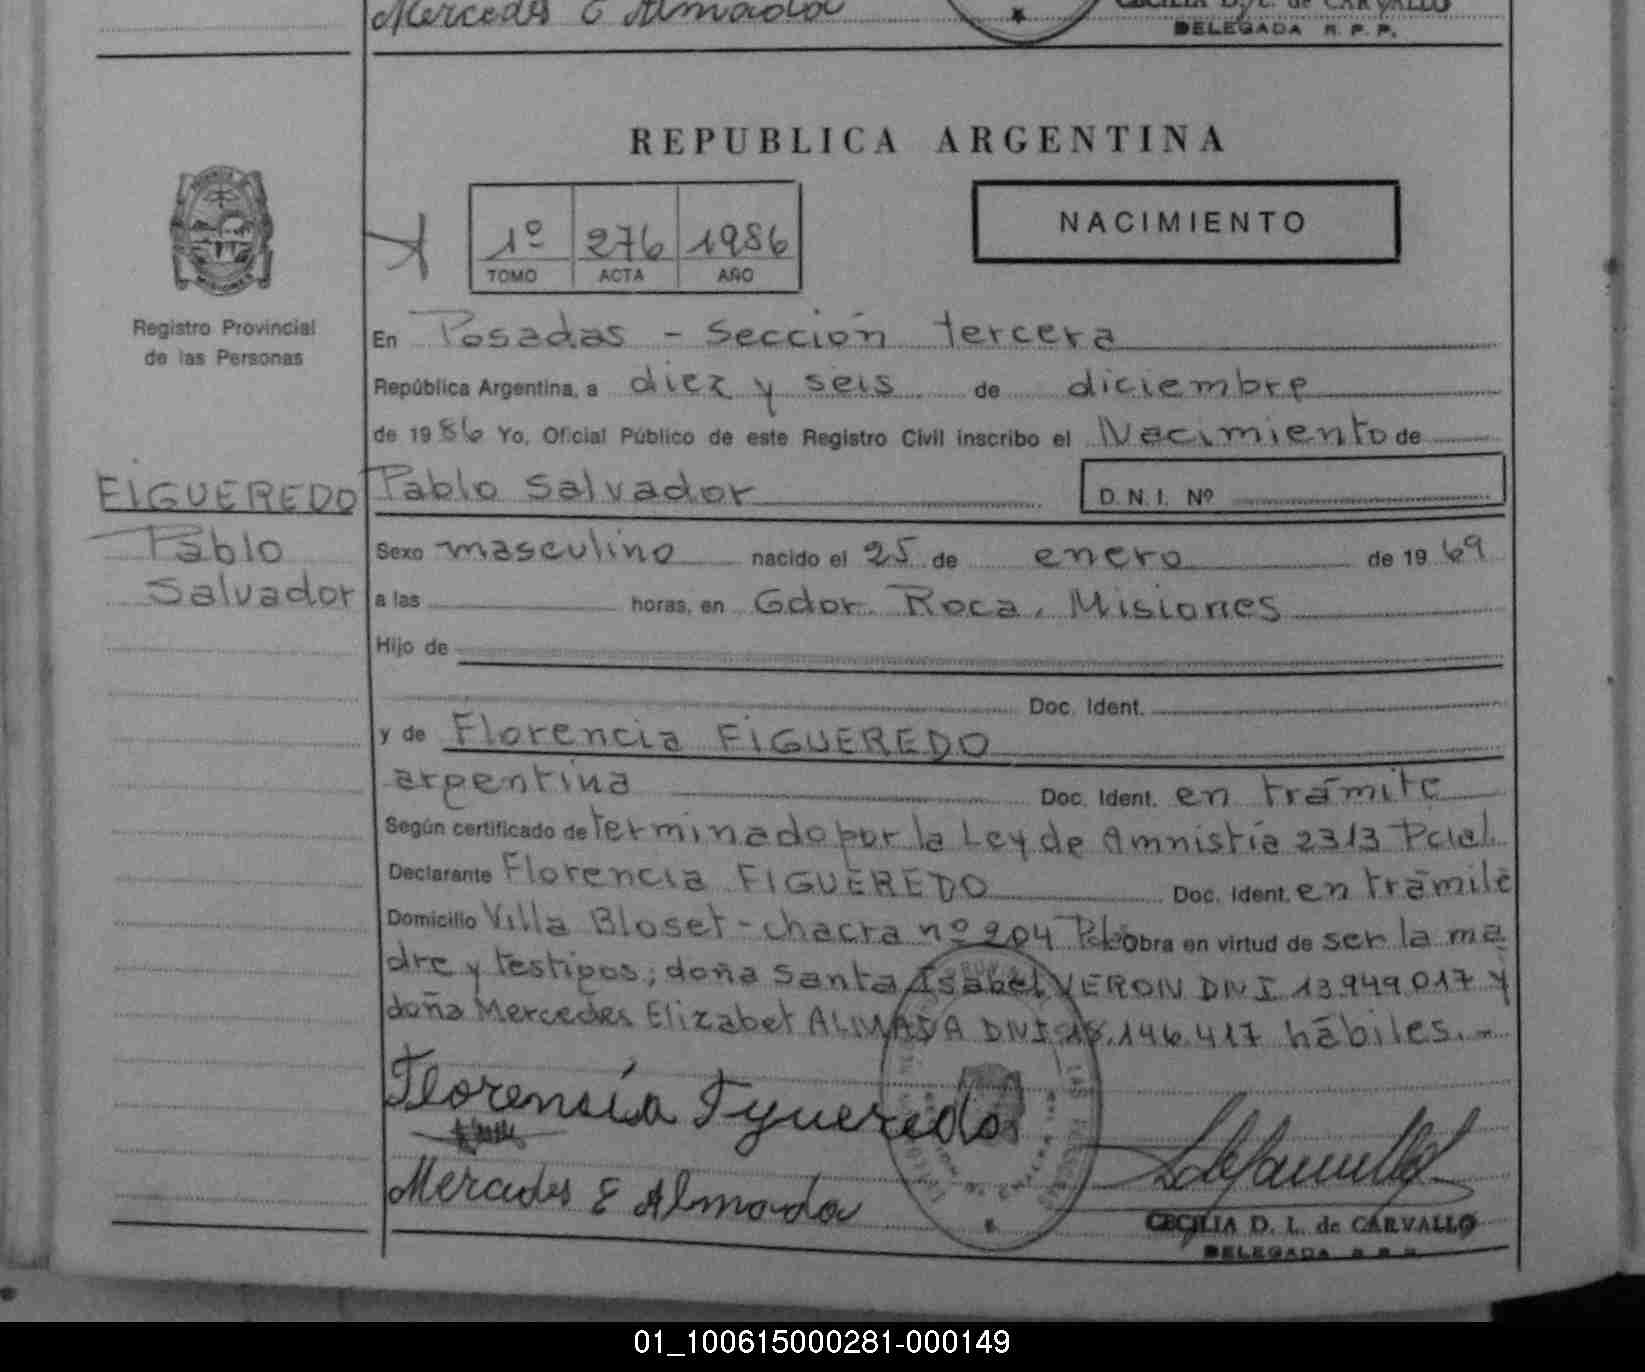 Mercedes E Almada
CECILIA D. L. de CARVALLO
DELEGADA R. P. P.
REPUBLICA ARGENTINA
1º 276 1986
TOMO ACTA AÑO
NACIMIENTO
Registro Provincial
de las Personas
En Posadas - Sección tercera
República Argentina, a diez y seis de diciembre
de 1986 Yo, Oficial Público de este Registro Civil inscribo el Nacimiento de
Pablo Salvador D. N. I. Nº
FIGUEREDO
Pablo
Salvador
Sexo masculino nacido el 25 de enero de 1969
a las horas, en Gdor. Roca. Misiones
Hijo de
Doc. Ident.
y de Florencia FIGUEREDO
argentina Doc. Ident. en trámite
Según certificado de terminado por la Ley de Amnistía 2313 Pcial.
Declarante Florencia FIGUEREDO Doc. Ident. en trámite
Domicilio Villa Bloset - chacra nº 204 obra en virtud de ser la ma
dre y testigos; doña Santa Isabel VERON DNI 13.949.017 y
doña Mercedes Elizabet ALMADA DNI 18.146.417 hábiles.-
Florencia Figueredo
Mercedes E Almada
CECILIA D. L. de CARVALLO
DELEGADA
01_100615000281-000149